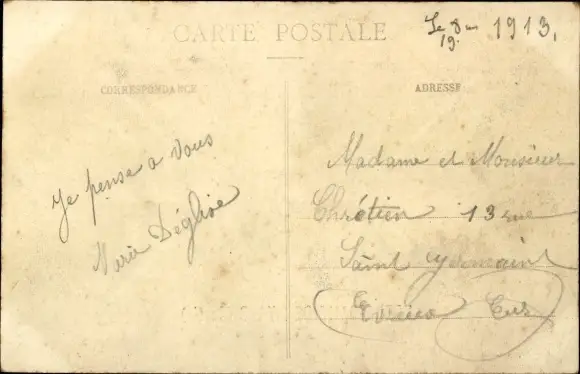 CARTE POSTALE
Le 8
19. 1913.
CORRESPONDANCE
ADRESSE
Je pense a vous
Marie Déglise
Madame et Monsieur
Chrétien 13 rue
Saint Germaint
Evreux Eur